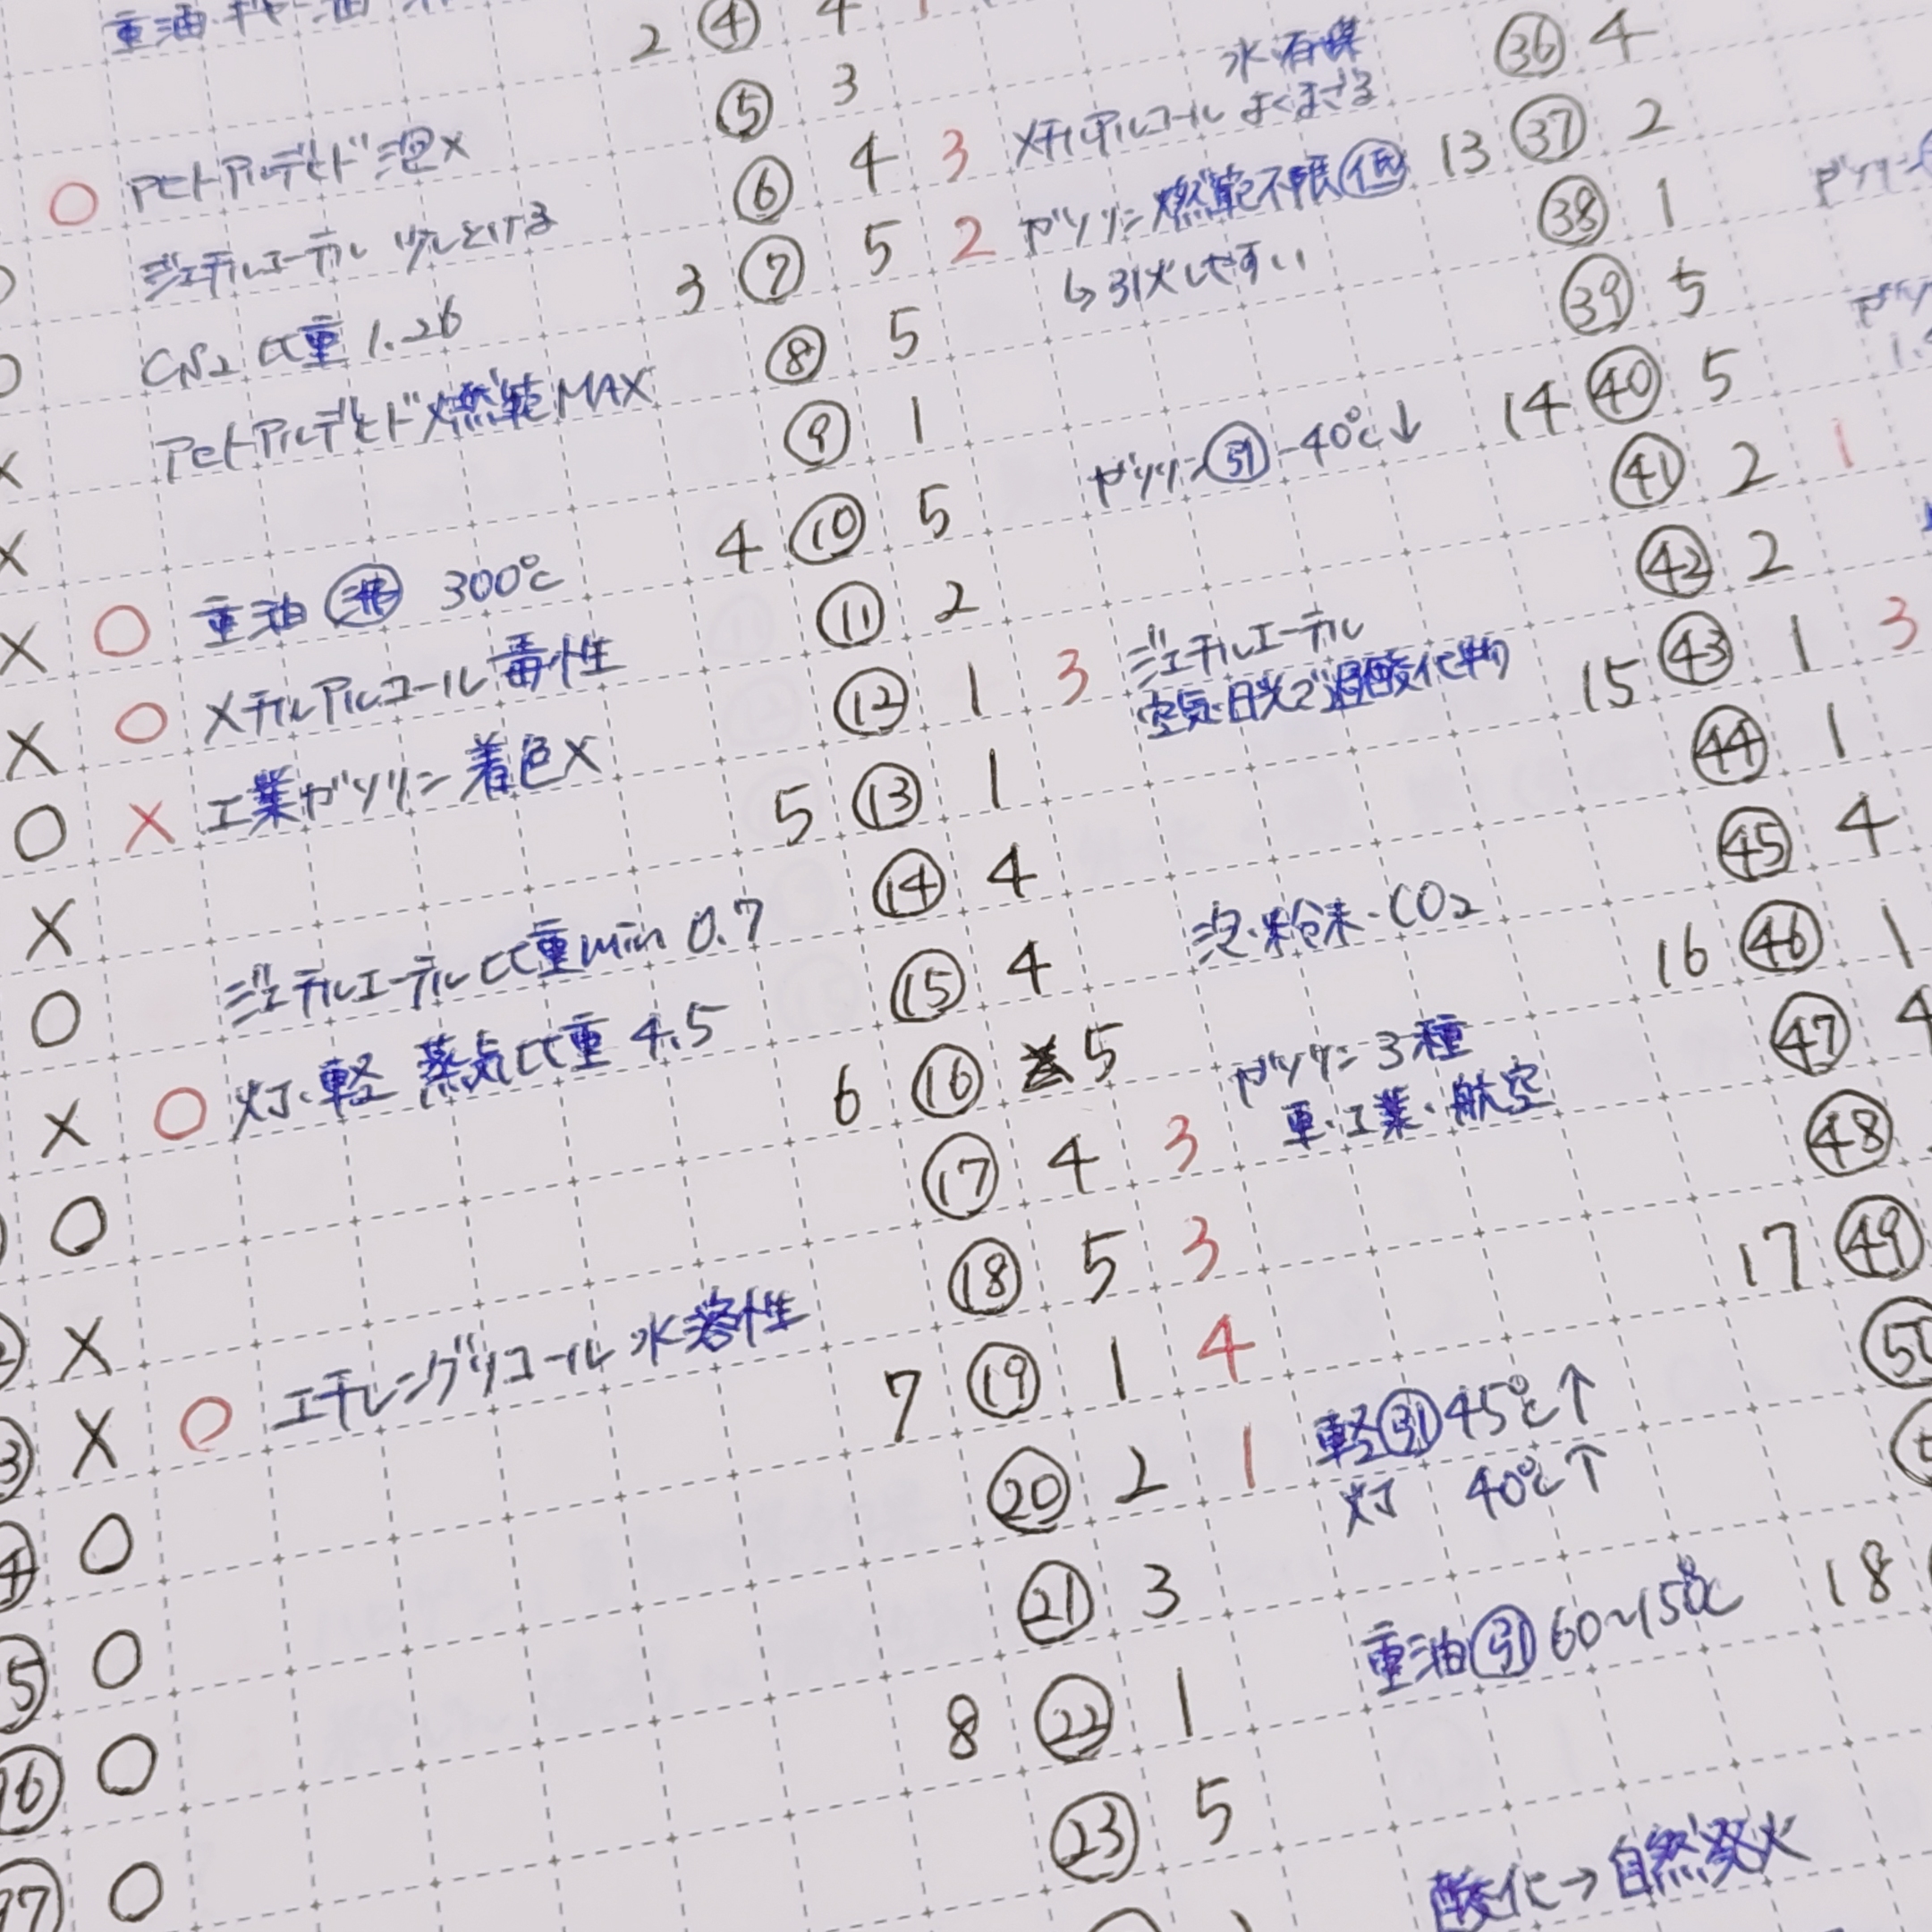 重油・ギヤー油
2 ④ 4
⑤ 3
○ アセトアルデヒド 泡×
⑥ 4 3
ジエチルエーテル 少しとける
3 ⑦ 5 2
CS₂ 比重 1.26
⑧ 5
× アセトアルデヒド 燃範MAX
⑨ 1
×
4 ⑩ 5
× ○ 重油 沸 300℃
⑪ 2
× ○ メチルアルコール 毒性
⑫ 1 3
○ × 工業ガソリン 着色×
5 ⑬ 1
×
⑭ 4
○ ジエチルエーテル 比重min 0.7
⑮ 4
× ○ 灯・軽 蒸気比重 4.5
6 ⑯ 5
○
⑰ 4 3
×
⑱ 5 3
× ○ エチレングリコール 水溶性
7 ⑲ 1 4
○
⑳ 2 1
5 ○
㉑ 3
○
8 ㉒ 1
○
㉓ 5
水・石.
メチルアルコール よくまざる
ガソリン 燃範下限 低
↳引火しやすい
ガソリン 引 -40℃↓
ジエチルエーテル
空気・日光で過酸化物
泡・粉末・CO₂
ガソリン 3種
車・工業・航空
軽 引 45℃↑
灯 40℃↑
重油 引 60~150℃
酸化→自然発火
㊱ 4
13 ㊲ 2
㊳ 1
㊴ 5
14 ㊵ 5
㊶ 2 1
㊷ 2
15 ㊸ 1 3
㊹ 1
㊺ 4
16 ㊻ 1
㊼ 4
㊽
17 ㊾
㊿
18